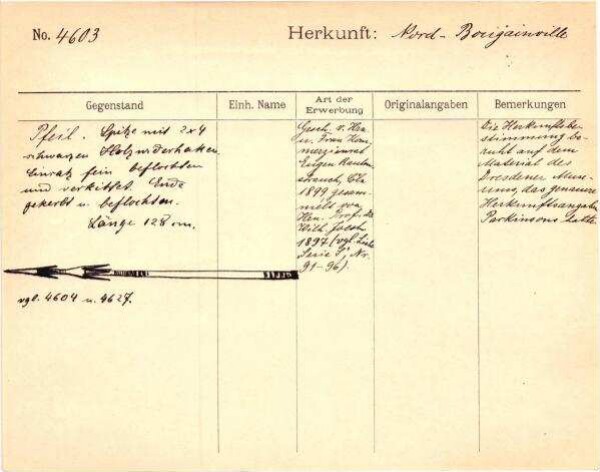 No. 4603
Herkunft: Nord-Bougainville
Gegenstand
Einh. Name
Art der
Erwerbung
Originalangaben
Bemerkungen
Pfeil. Spitze mit 2x4
schwarzen Holzwiderhaken.
Einsatz fein beflochten
und verkittet. Ende
gekerbt u. beflochten.
Länge 128 cm.
vgl. 4604 u. 4627.
Gesch. v. Hrn
u. Frau Kom-
merzienrat
Eugen Rauten-
strauch, Cöln
1899 gesam-
melt von
Hrn. Prof. Dr.
Wilh. Joest
1897 (vgl. Liste
Serie I, Nr.
91-96).
Die Herkunftsbe-
stimmung be-
ruht auf dem
Material des
Dresdener Muse-
ums, das genauere
Herkunftsangaben
Parkinsons